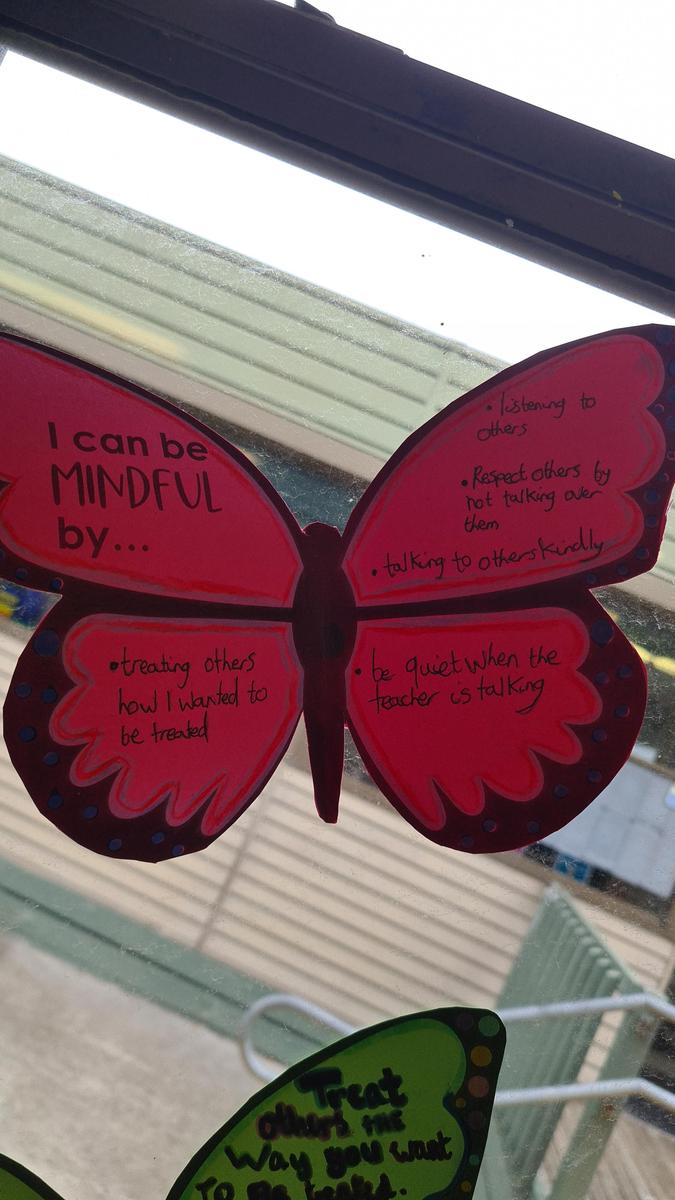 I can be
MINDFUL
by...
• listening to
others
• Respect others by
not talking over
them
• talking to others kindly
• treating others
how I wanted to
be treated
• be quiet when the
teacher is talking
Treat
others the
Way you want
To Be treated.